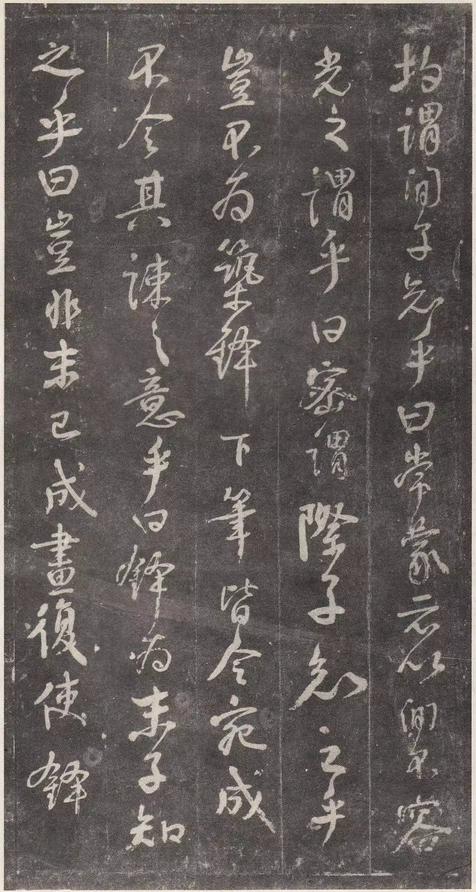 均謂間子知乎曰常蒙示以間不容
光之謂乎曰密謂際子知之乎
豈不為築鋒下筆皆令宛成
不令其疎之意乎曰鋒為末子知
之乎曰豈非末已成畫復使鋒